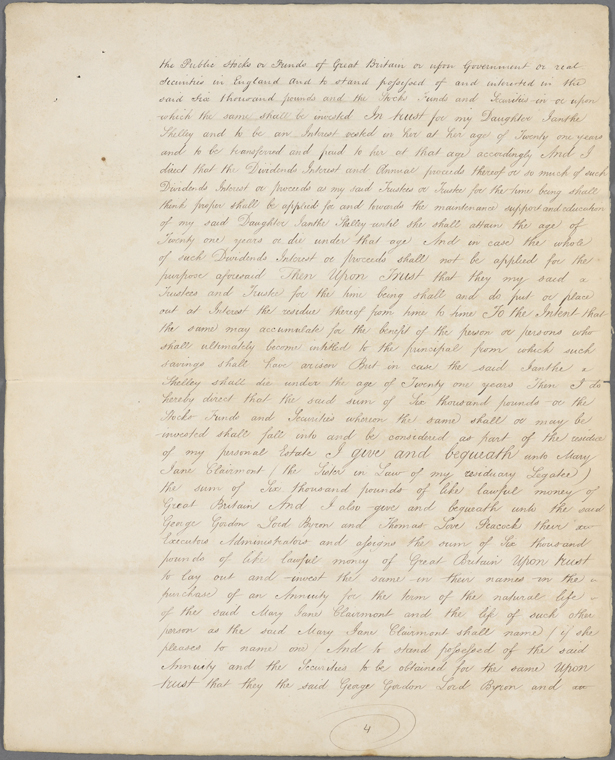 the Public Stocks or Funds of Great Britain or upon Government or real
Securities in England and to stand possessed of and interested in the
said Six thousand pounds and the Stocks Funds and Securities in or upon
which the same shall be invested In trust for my Daughter Ianthe
Shelley and to be an Interest vested in her at her age of Twenty one years
and to be transferred and paid to her at that age accordingly And I
direct that the Dividends Interest and Annual proceeds thereof or so much of such
Dividends Interest or proceeds as my said Trustees or Trustee for the time being shall
think proper shall be applied for and towards the maintenance support and education
of my said Daughter Ianthe Shelley until she shall attain the age of
Twenty one years or die under that age And in case the whole
of such Dividends Interest or proceeds shall not be applied for the
purpose aforesaid Then Upon Trust that they my said
Trustees and Trustee for the time being shall and do put or place
out at Interest the residue thereof from time to time To the Intent that
the same may accumulate for the benefit of the person or persons who
shall ultimately become intitled to the principal from which such
savings shall have arisen But in case the said Ianthe
Shelley shall die under the age of Twenty one years Then I do
hereby direct that the said sum of Six thousand pounds or the
Stocks Funds and Securities whereon the same shall or may be
invested shall fall into and be considered as part of the residue
of my personal Estate I give and bequeath unto Mary
Jane Clairmont (the Sister in Law of my residuary Legatee)
the sum of Six thousand pounds of like lawful money of
Great Britain And I also give and bequeath unto the said
George Gordon Lord Byron and Thomas Love Peacock their
Executors Administrators and assigns the sum of Six thousand
pounds of like lawful money of Great Britain Upon trust
to lay out and invest the same in their names in the
purchase of an Annuity for the term of the natural life
of the said Mary Jane Clairmont and the life of such other
person as the said Mary Jane Clairmont shall name (if she
pleases to name one) And to stand possessed of the said
Annuity and the Securities to be obtained for the same Upon
trust that they the said George Gordon Lord Byron and
4